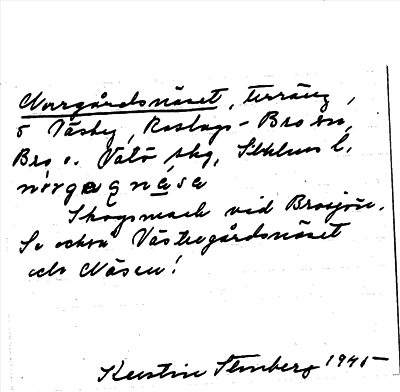 Norrgårdsnäset, terräng,
o Väsby, Roslags-Bro sn,
Bro o. Vätö skg, Sthlms l.
nòrgagnä́sa
Skogsmark vid Brosjön.
Se också Västergårdsnäset
och Näsen!
Kerstin Stenberg 1945